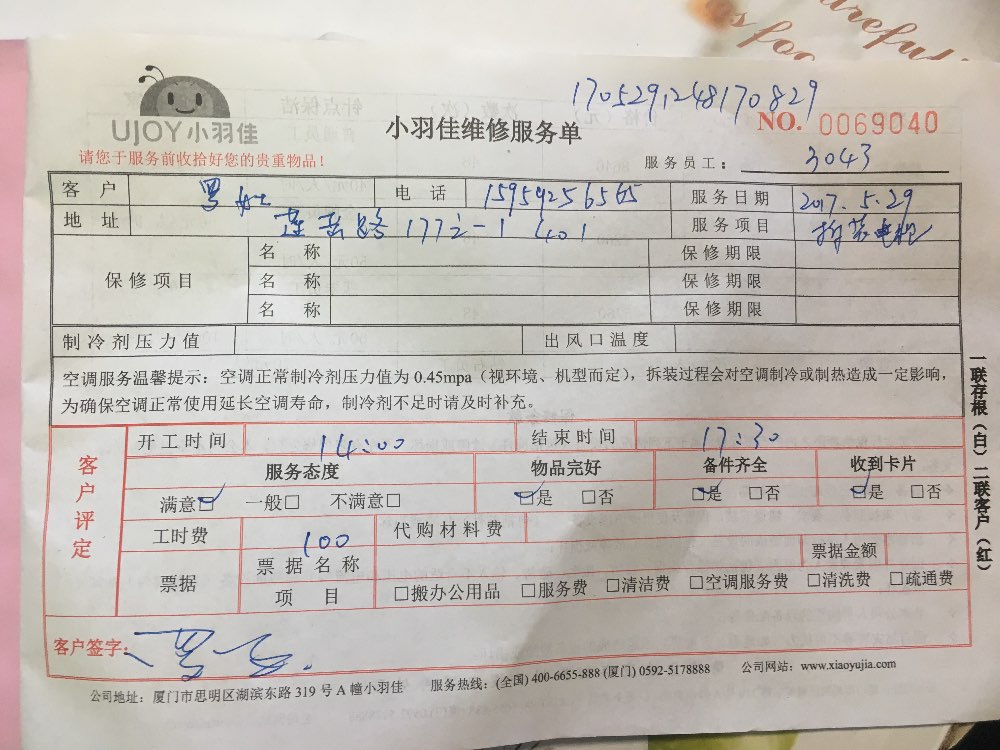 areful
as foo
1705291248170829
UJOY小羽佳
小羽佳维修服务单
NO. 0069040
请您于服务前收拾好您的贵重物品！
服务员工： 3043
客 户 电 话 15959256565 服务日期 2017.5.29
地 址 莲岳路 177之-1 401 服务项目 拆装电机
保修项目
名 称 保修期限
名 称 保修期限
名 称 保修期限
制冷剂压力值 出风口温度
空调服务温馨提示：空调正常制冷剂压力值为 0.45mpa（视环境、机型而定），拆装过程会对空调制冷或制热造成一定影响，
为确保空调正常使用延长空调寿命，制冷剂不足时请及时补充。
客户评定
开工时间 14:00 结束时间 17:30
服务态度 物品完好 备件齐全 收到卡片
满意☑ 一般□ 不满意□ ☑是 □否 ☑是 □否 ☑是 □否
工时费 100 代购材料费
票据 票据名称 票据金额
项 目 □搬办公用品 □服务费 □清洁费 □空调服务费 □清洗费 □疏通费
客户签字：
公司地址：厦门市思明区湖滨东路 319 号 A 幢小羽佳 服务热线：(全国) 400-6655-888 (厦门) 0592-5178888 公司网站：www.xiaoyujia.com
一联存根（白）二联客户（红）